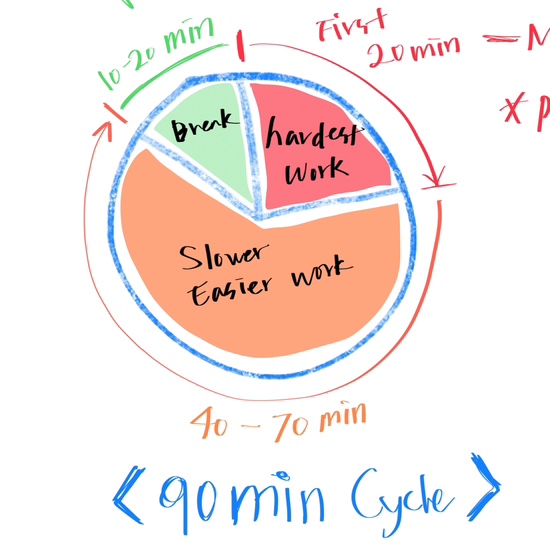 10-20 min
First
20 min — M
x p
Break
hardest
Work
Slower
Easier work
40 - 70 min
< 90 min Cycle >